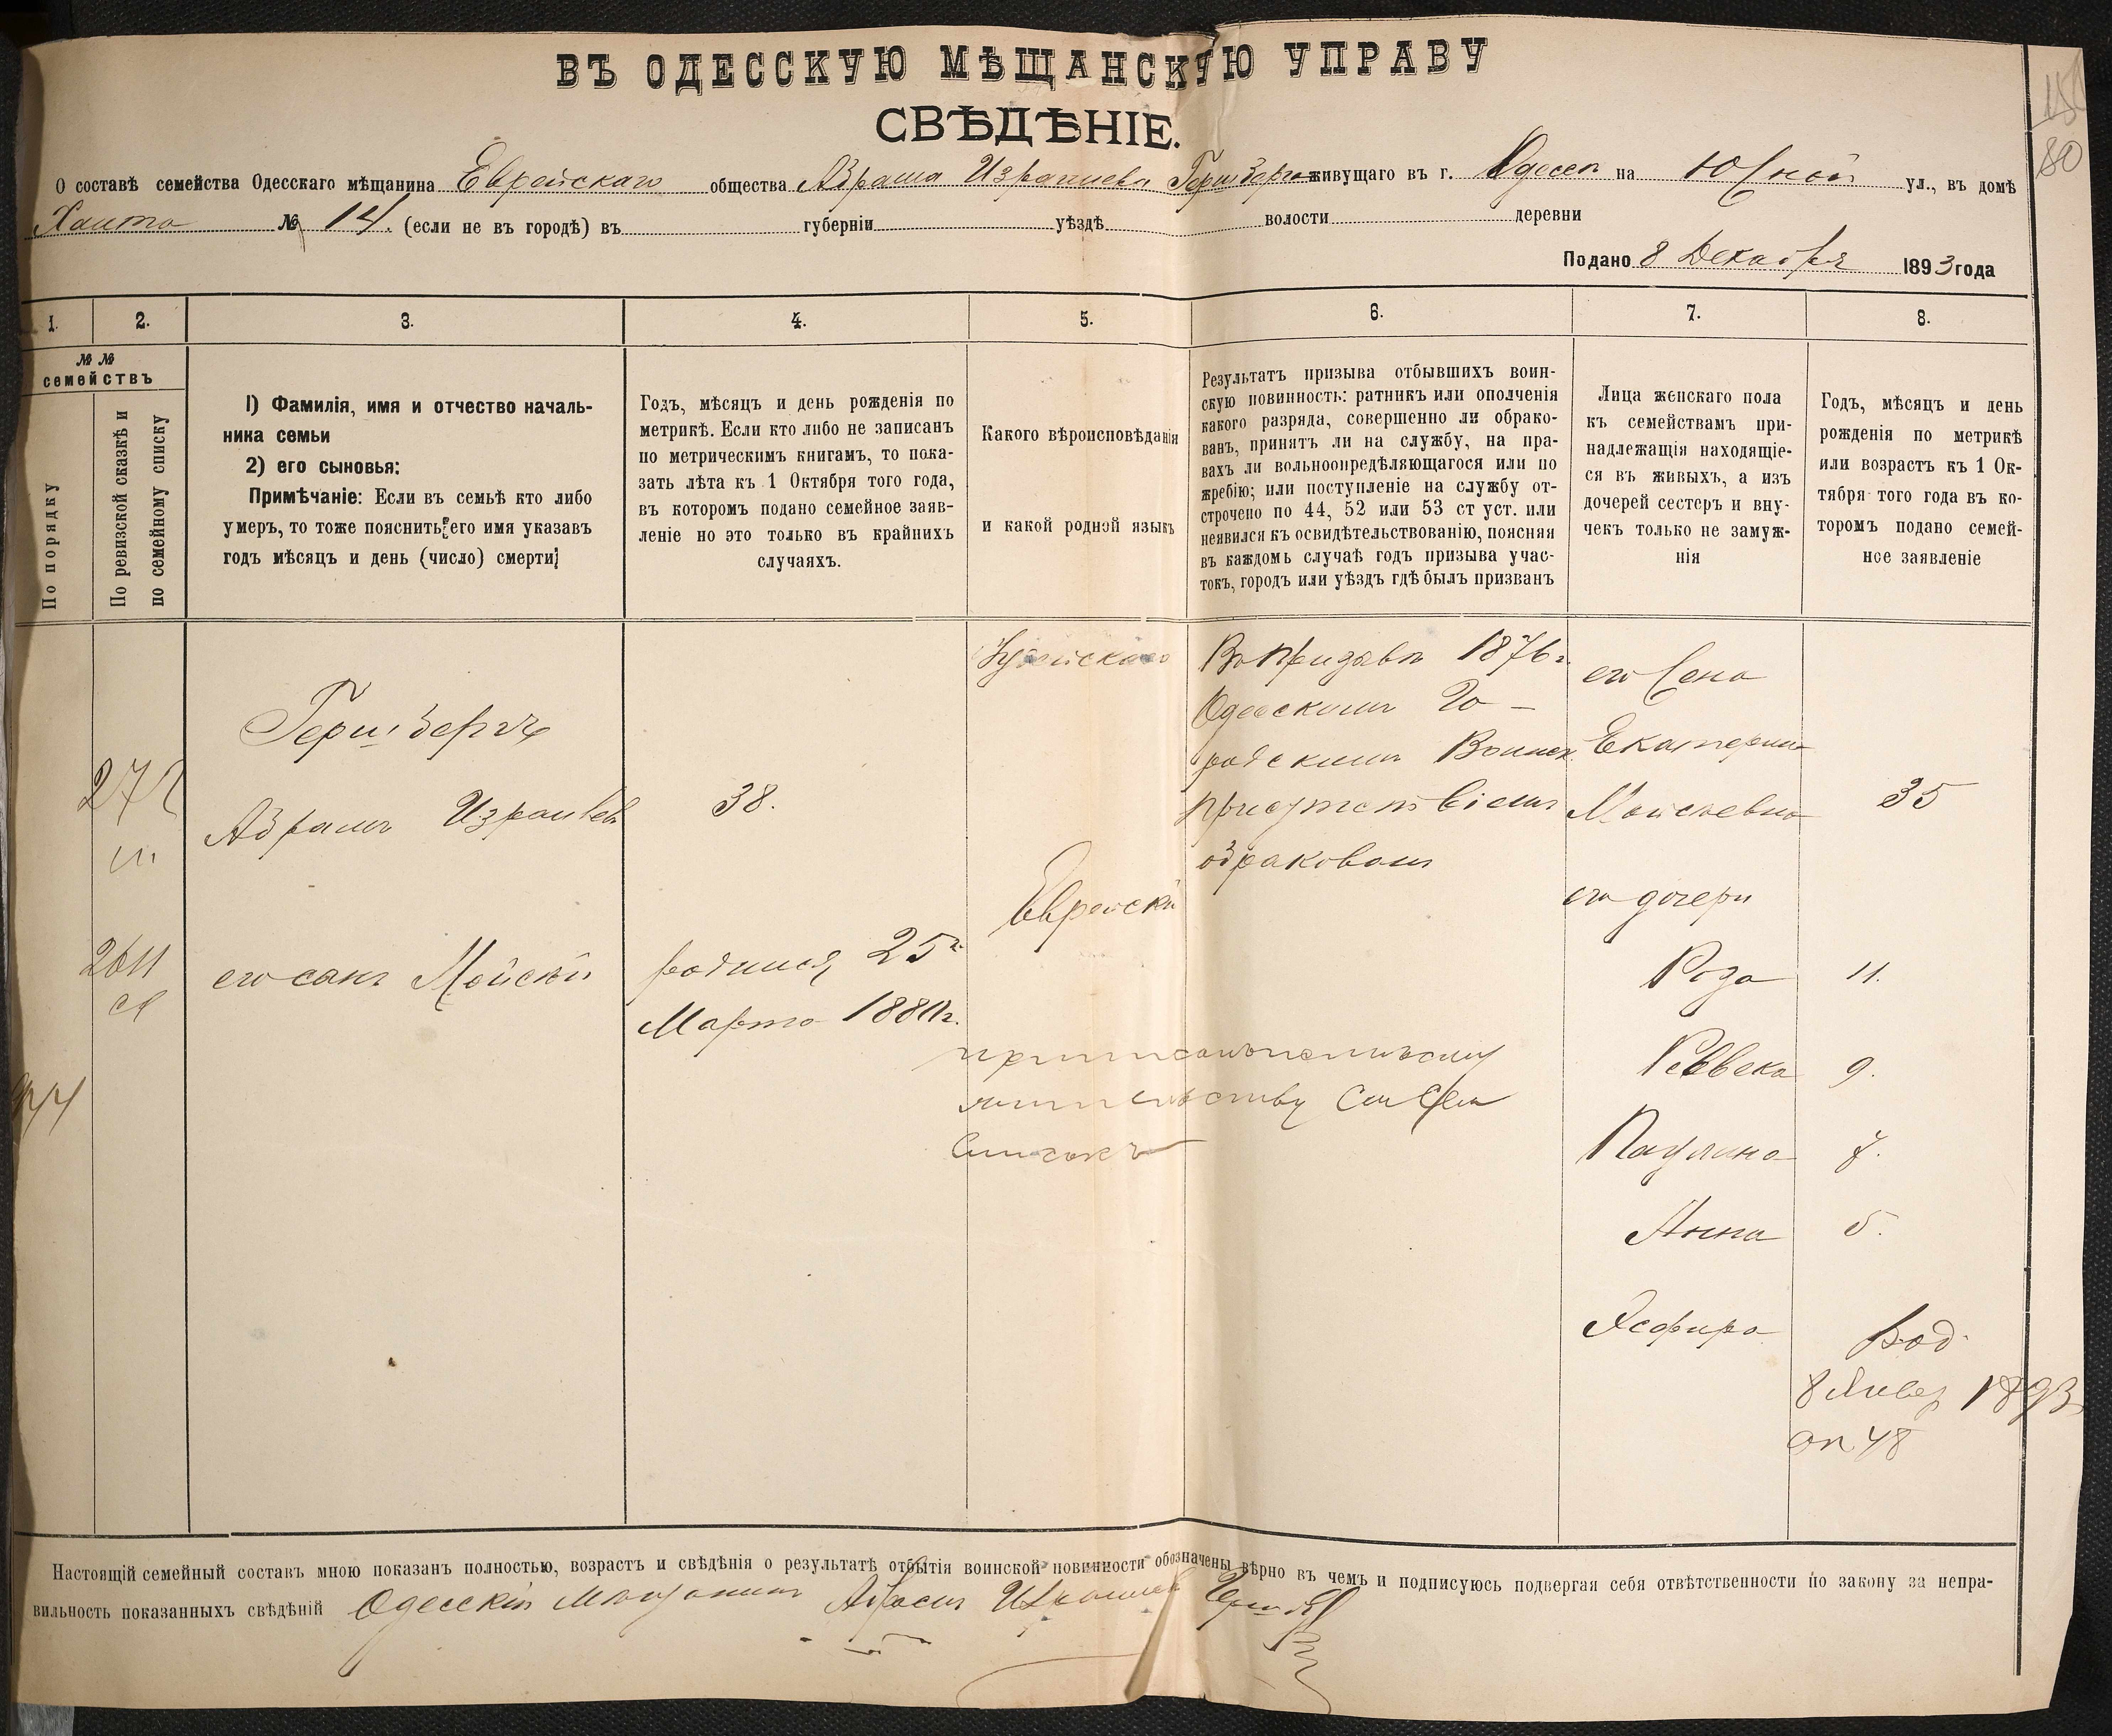 ВЪ ОДЕССКУЮ МѢЩАНСКУЮ УПРАВУ
СВѢДѢНІЕ.
О составѣ семейства Одесскаго мѣщанина Еврейскаго общества Абрама Израилева Гершберга живущаго въ г. Одессѣ на Южной ул., въ домѣ
№ 14. (если не въ городѣ) въ губерніи уѣздѣ волости деревни
Подано 8 Декабря 1893 года
1. 2. 3. 4. 5. 6. 7. 8.
№ №
семействъ
По порядку
По ревизской сказкѣ и
по семейному списку
1) Фамилія, имя и отчество началь-
ника семьи
2) его сыновья:
Примѣчаніе: Если въ семьѣ кто либо
умеръ, то тоже пояснить его имя указавъ
годъ мѣсяцъ и день (число) смерти
Годъ, мѣсяцъ и день рожденія по
метрикѣ. Если кто либо не записанъ
по метрическимъ книгамъ, то пока-
зать лѣта къ 1 Октября того года,
въ которомъ подано семейное заяв-
леніе но это только въ крайнихъ
случаяхъ.
Какого вѣроисповѣданія
и какой родной языкъ
Результатъ призыва отбывшихъ воин-
скую повинность: ратникъ или ополченія
какого разряда, совершенно ли обрако-
ванъ, принятъ ли на службу, на пра-
вахъ ли вольноопредѣляющагося или по
жребію; или поступленіе на службу от-
строчено по 44, 52 или 53 ст уст. или
неявился къ освидѣтельствованію, поясняя
въ каждомъ случаѣ годъ призыва учас-
токъ, городъ или уѣздъ гдѣ былъ призванъ
Лица женскаго пола
къ семействамъ при-
надлежащія находящіе-
ся въ живыхъ, а изъ
дочерей сестеръ и вну-
чекъ только не замуж-
нія
Годъ, мѣсяцъ и день
рожденія по метрикѣ
или возрастъ къ 1 Ок-
тября того года въ ко-
торомъ подано семей-
ное заявленіе
Гершбергъ
Абрамъ Израилев
38.
его сынъ Мойсей
родился 25
Марта
Іудейскаго
Еврейскій
Въ призывѣ 1876 г.
Одесскимъ Го-
родскимъ Воинск.
присутствіемъ
обракованъ
его жена
Екатерина
Мойсеевна
35
его дочери
Роза 11.
Реввека 9.
Паулина 7.
Анна 5.
Эсфира
Род.
8 Январ 1893
Настоящій семейный составъ мною показанъ полностью, возрастъ и свѣдѣнія о результатѣ отбытія воинской повинности обозначены вѣрно въ чемъ и подписуюсь подвергая себя отвѣтственности по закону за непра-
вильность показанныхъ свѣдѣній Одесскій мѣщанинъ Абрамъ Израилев